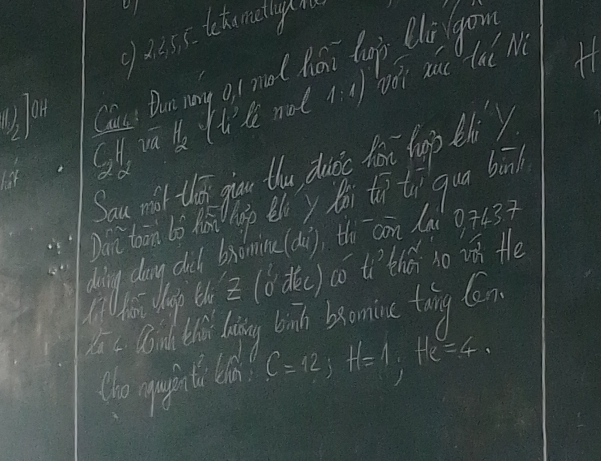 c) 2,2,5,5-tetramethylhe
H)2]OH
H
Câu: Đun nóng 0,1 mol hỗn hợp khí gồm
C2H2 và H2 (tỉ lệ mol 1:1) với xúc tác Ni
Sau một thời gian thu được hỗn hợp khí Y.
Dẫn toàn bộ hỗn hợp khí Y lội từ từ qua bình
đựng dung dịch bromine (dư), thì còn lại 0,7437
lít hỗn hợp khí Z (ở đkc) có tỉ khối so với He
là 4. Tính khối lượng bình bromine tăng lên.
Cho nguyên tử khối: C=12; H=1; He=4.